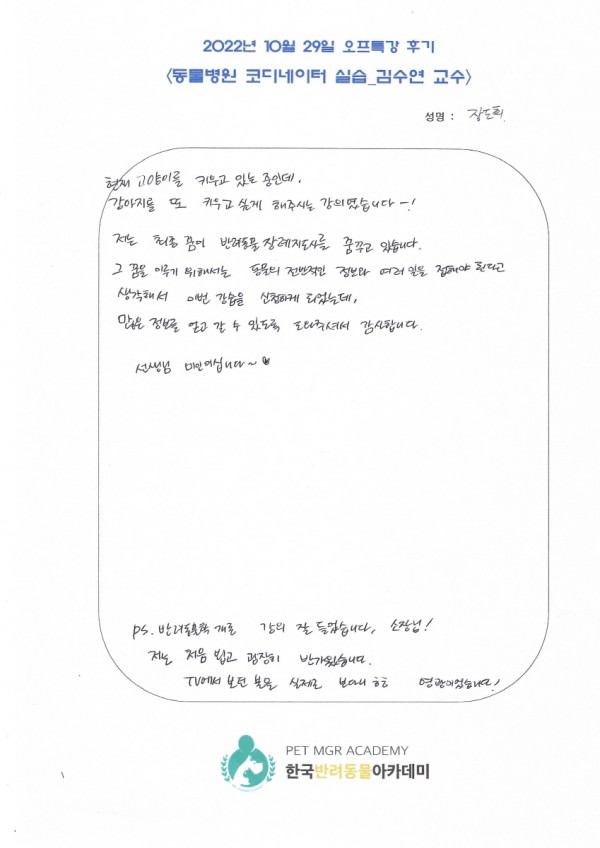 2022년 10월 29일 오프특강 후기
<동물병원 코디네이터 실습_김수연 교수>
성명 : 장도희
현재 고양이를 키우고 있는 중인데,
강아지를 또 키우고 싶게 해주시는 강의였습니다~!
저는 최종 꿈이 반려동물 장례지도사를 꿈꾸고 있습니다.
그 꿈을 이루기 위해서는 동물의 전반적인 정보와 여러 일을 접해야 된다고
생각해서 이번 강습을 신청하게 되었는데,
많은 정보를 얻고 갈 수 있도록 도와주셔서 감사합니다.
선생님 미인이십니다~♥
ps. 반려동물학 개론 강의 잘 들었습니다, 소장님!
저는 처음 뵙고 굉장히 반가웠습니다.
TV에서 보던 분을 실제로 보다니 흐흐 영광이었습니다!
PET MGR ACADEMY
한국반려동물아카데미